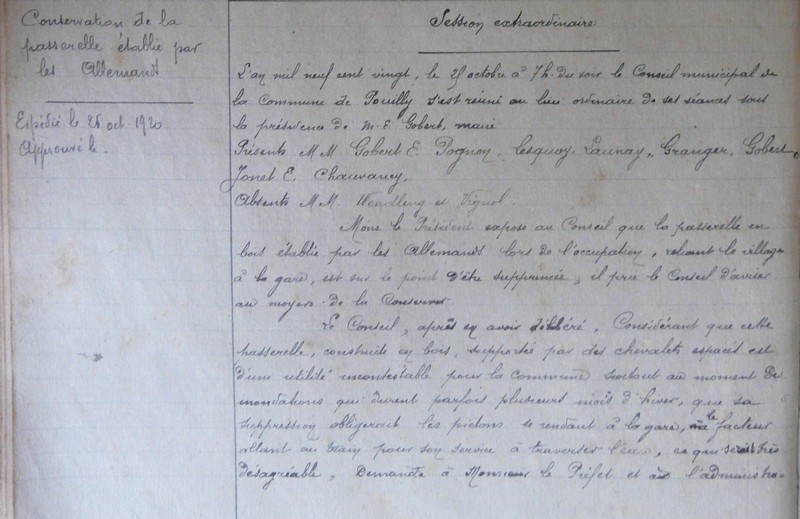 Conservation de la
passerelle établie par
les Allemands
Expédié le 26 oct 1920
Approuvé le.
Session extraordinaire
L'an mil neuf cent vingt, le 25 octobre à 7h. du soir le Conseil municipal de
la Commune de Pouilly s'est réuni au lieu ordinaire de ses séances sous
la présidence de M. E. Gobert, maire
Présents M M. Gobert E. Pognon, Lesquoy, Launay, Granger, Gobert
Jonet E. Chauvancy.
Absents M M. Wendling et Vignol.
Mons. le Président expose au Conseil que la passerelle en
bois établie par les Allemands lors de l'occupation, reliant le village
à la gare, est sur le point d'être supprimée, il prie le Conseil d'aviser
au moyen de la Conserver
Le Conseil, après en avoir délibéré, Considérant que cette
passerelle, construite en bois, supportée par des chevalets espacés est
d'une utilité incontestable pour la Commune surtout au moment des
inondations qui durent parfois plusieurs mois d'hiver, que sa
suppression obligerait les piétons se rendant à la gare, le facteur
allant au train pour son service à traverser l'eau, ce qui serait très
désagréable, Demande à Monsieur le Préfet et à l'administra-